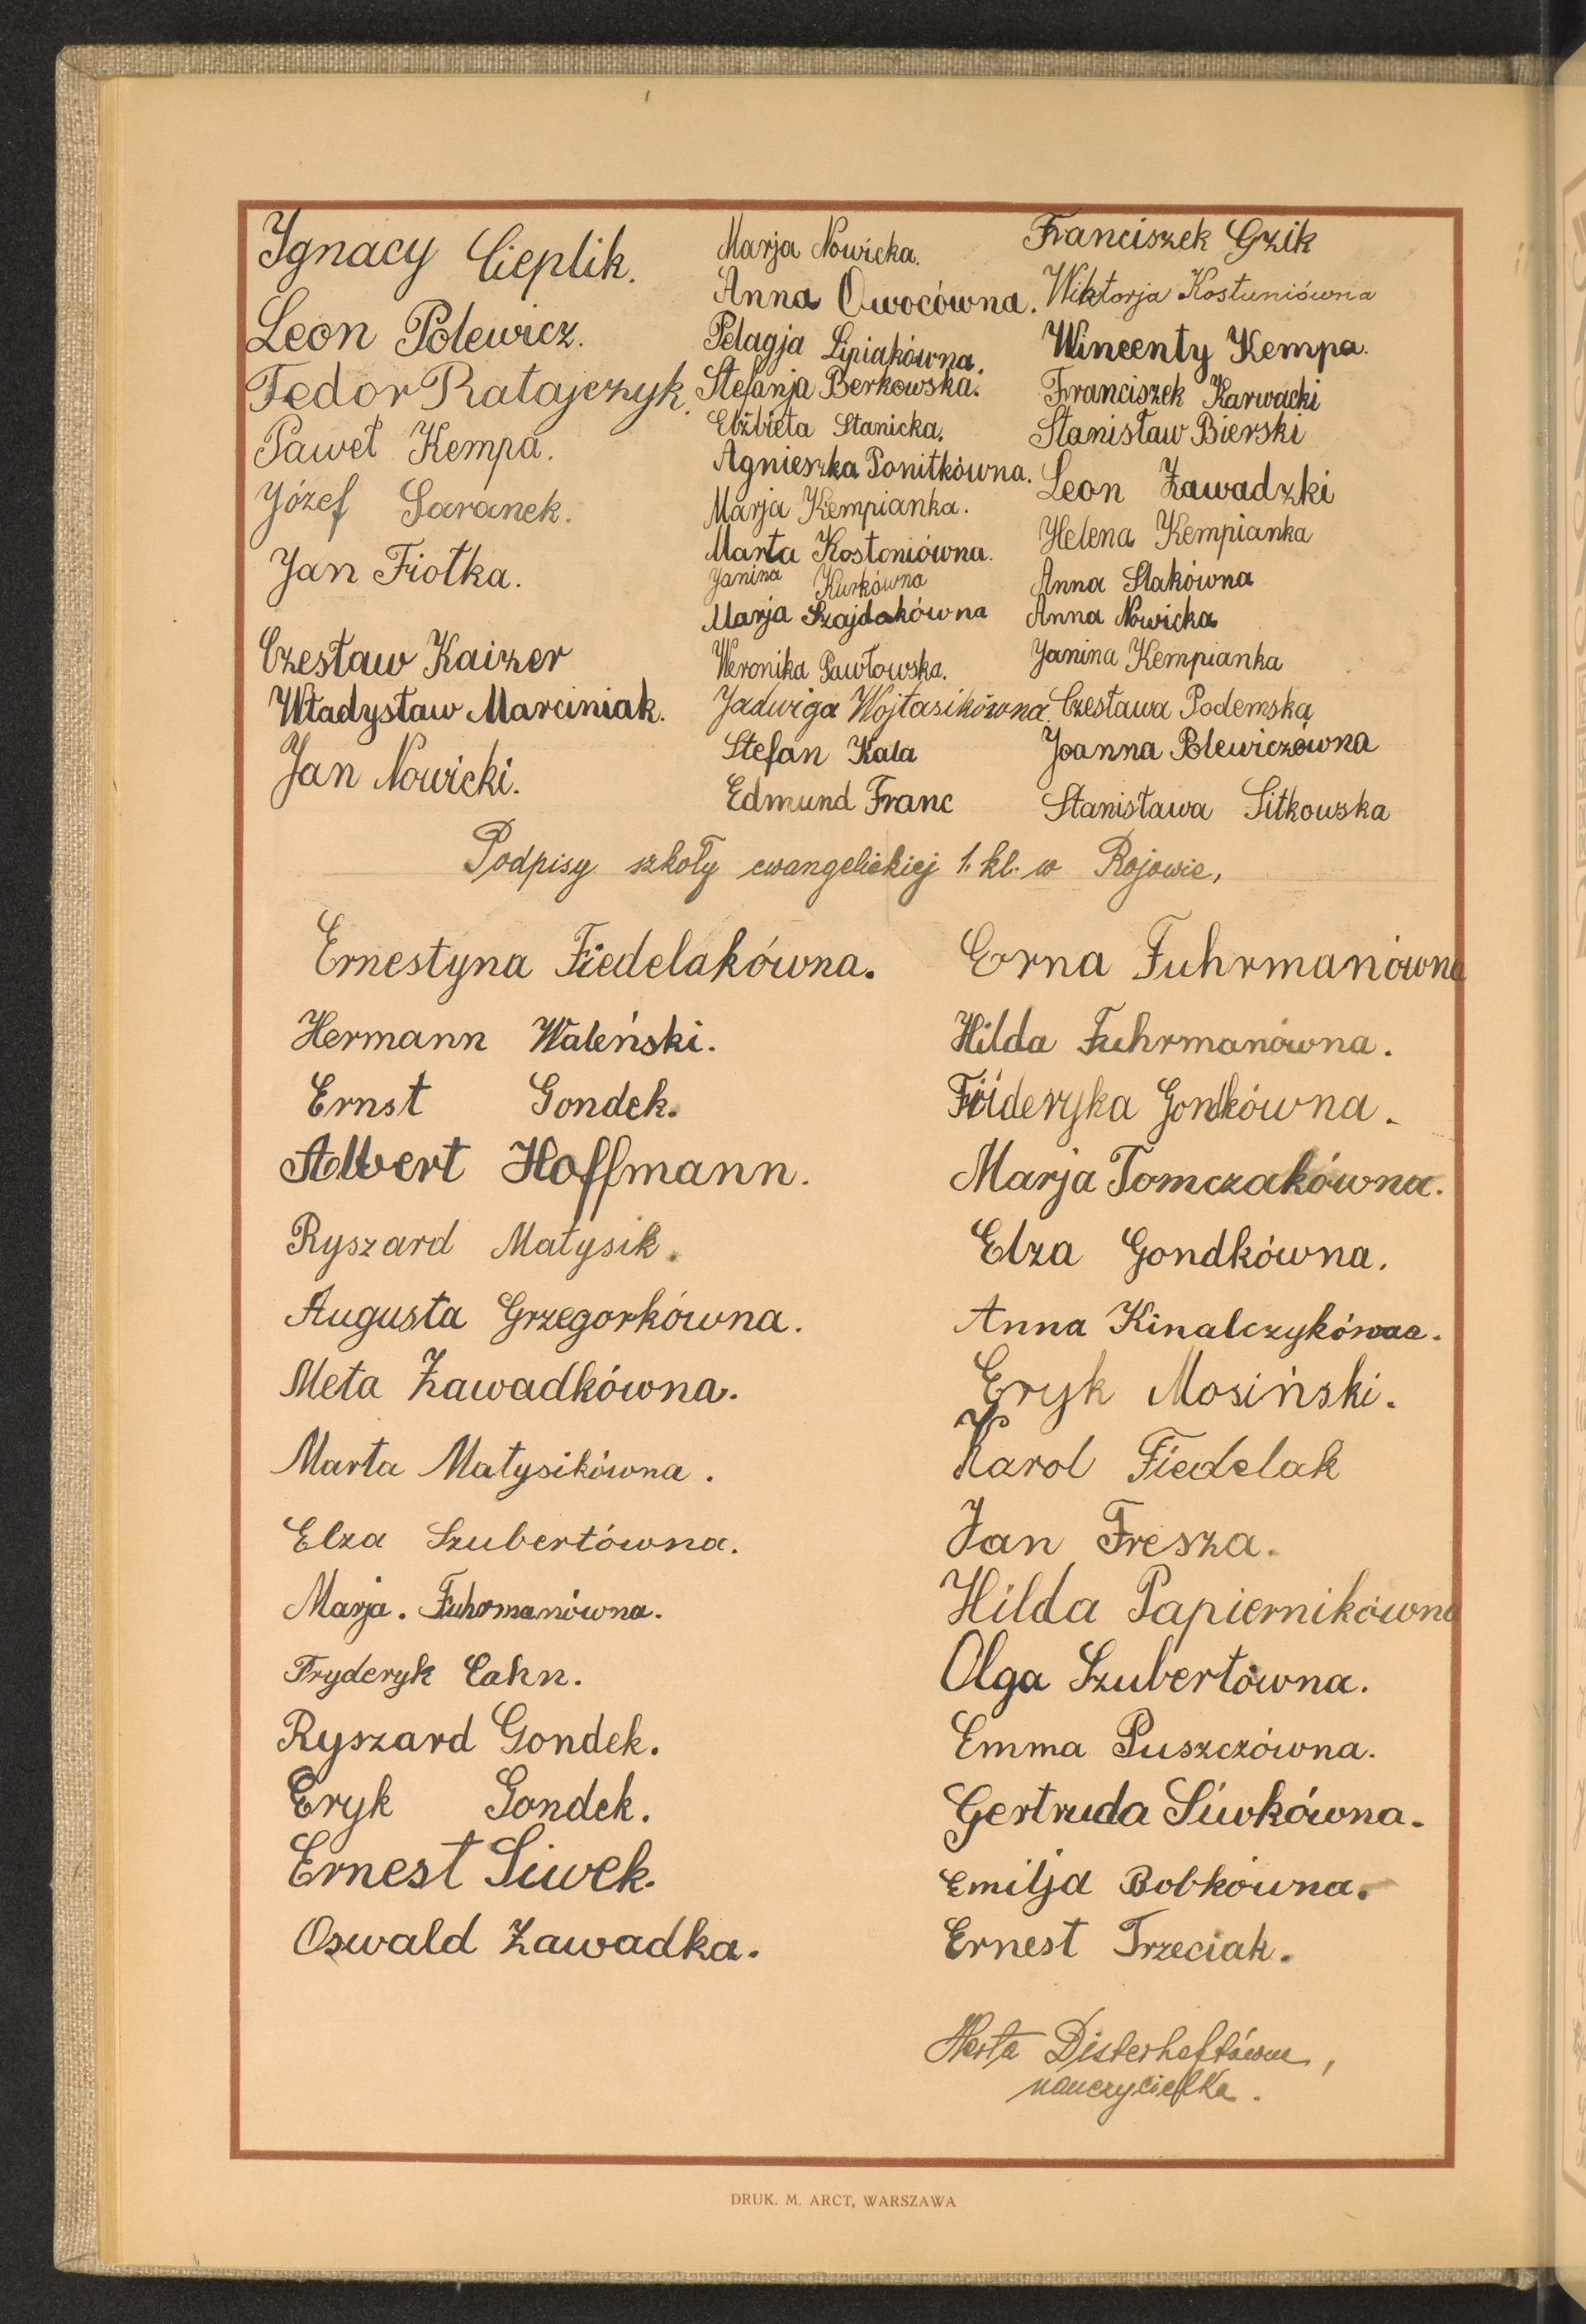 Ignacy Cieplik.
Leon Polewicz.
Fedor Ratajczyk.
Paweł Kempa.
Józef Garanek.
Jan Fiołka.
Czesław Kaizer
Władysław Marciniak.
Jan Nowicki.
Marja Nowicka.
Anna Owocówna.
Pelagja Lipiakówna.
Stefanja Berkowska.
Elżbieta Stanicka.
Agnieszka Ponitkówna.
Marja Kempianka.
Marta Kostoniówna.
Janina Kurkówna
Marja Szajdakówna
Weronika Pawłowska.
Jadwiga Wojtasikówna.
Stefan Kala
Edmund Franc
Franciszek Gzik
Wiktorja Kostuniówna
Wincenty Kempa.
Franciszek Karwacki
Stanisław Bierski
Leon Zawadzki
Helena Kempianka
Anna Slakówna
Anna Nowicka
Janina Kempianka
Czesława Podemska
Joanna Polewiczówna
Stanisława Sitkowska
Podpisy szkoły ewangelickiej 1. kl. w Rojowie,
Ernestyna Fiedelakówna.
Hermann Waleński.
Ernst Gondek.
Albert Hoffmann.
Ryszard Matysik.
Augusta Grzegorkówna.
Meta Zawadkówna.
Marta Matysikówna.
Elza Szubertówna.
Marja. Fuhrmanówna.
Fryderyk Cahn.
Ryszard Gondek.
Eryk Gondek.
Ernest Siwek.
Oswald Zawadka.
Erna Fuhrmanówna
Hilda Fuhrmanówna.
Gondkówna.
Marja Tomczakówna.
Elza Gondkówna.
Anna Kinalczykówna.
Eryk Mosiński.
Karol Fiedelak
Jan Fresza.
Hilda Papiernikówna
Olga Szubertówna.
Emma Puszczówna.
Gertruda Siwkówna.
Emilja Bobkówna.
Ernest Trzeciak.
Herta Disterheftówna,
nauczycielka.
DRUK. M. ARCT, WARSZAWA